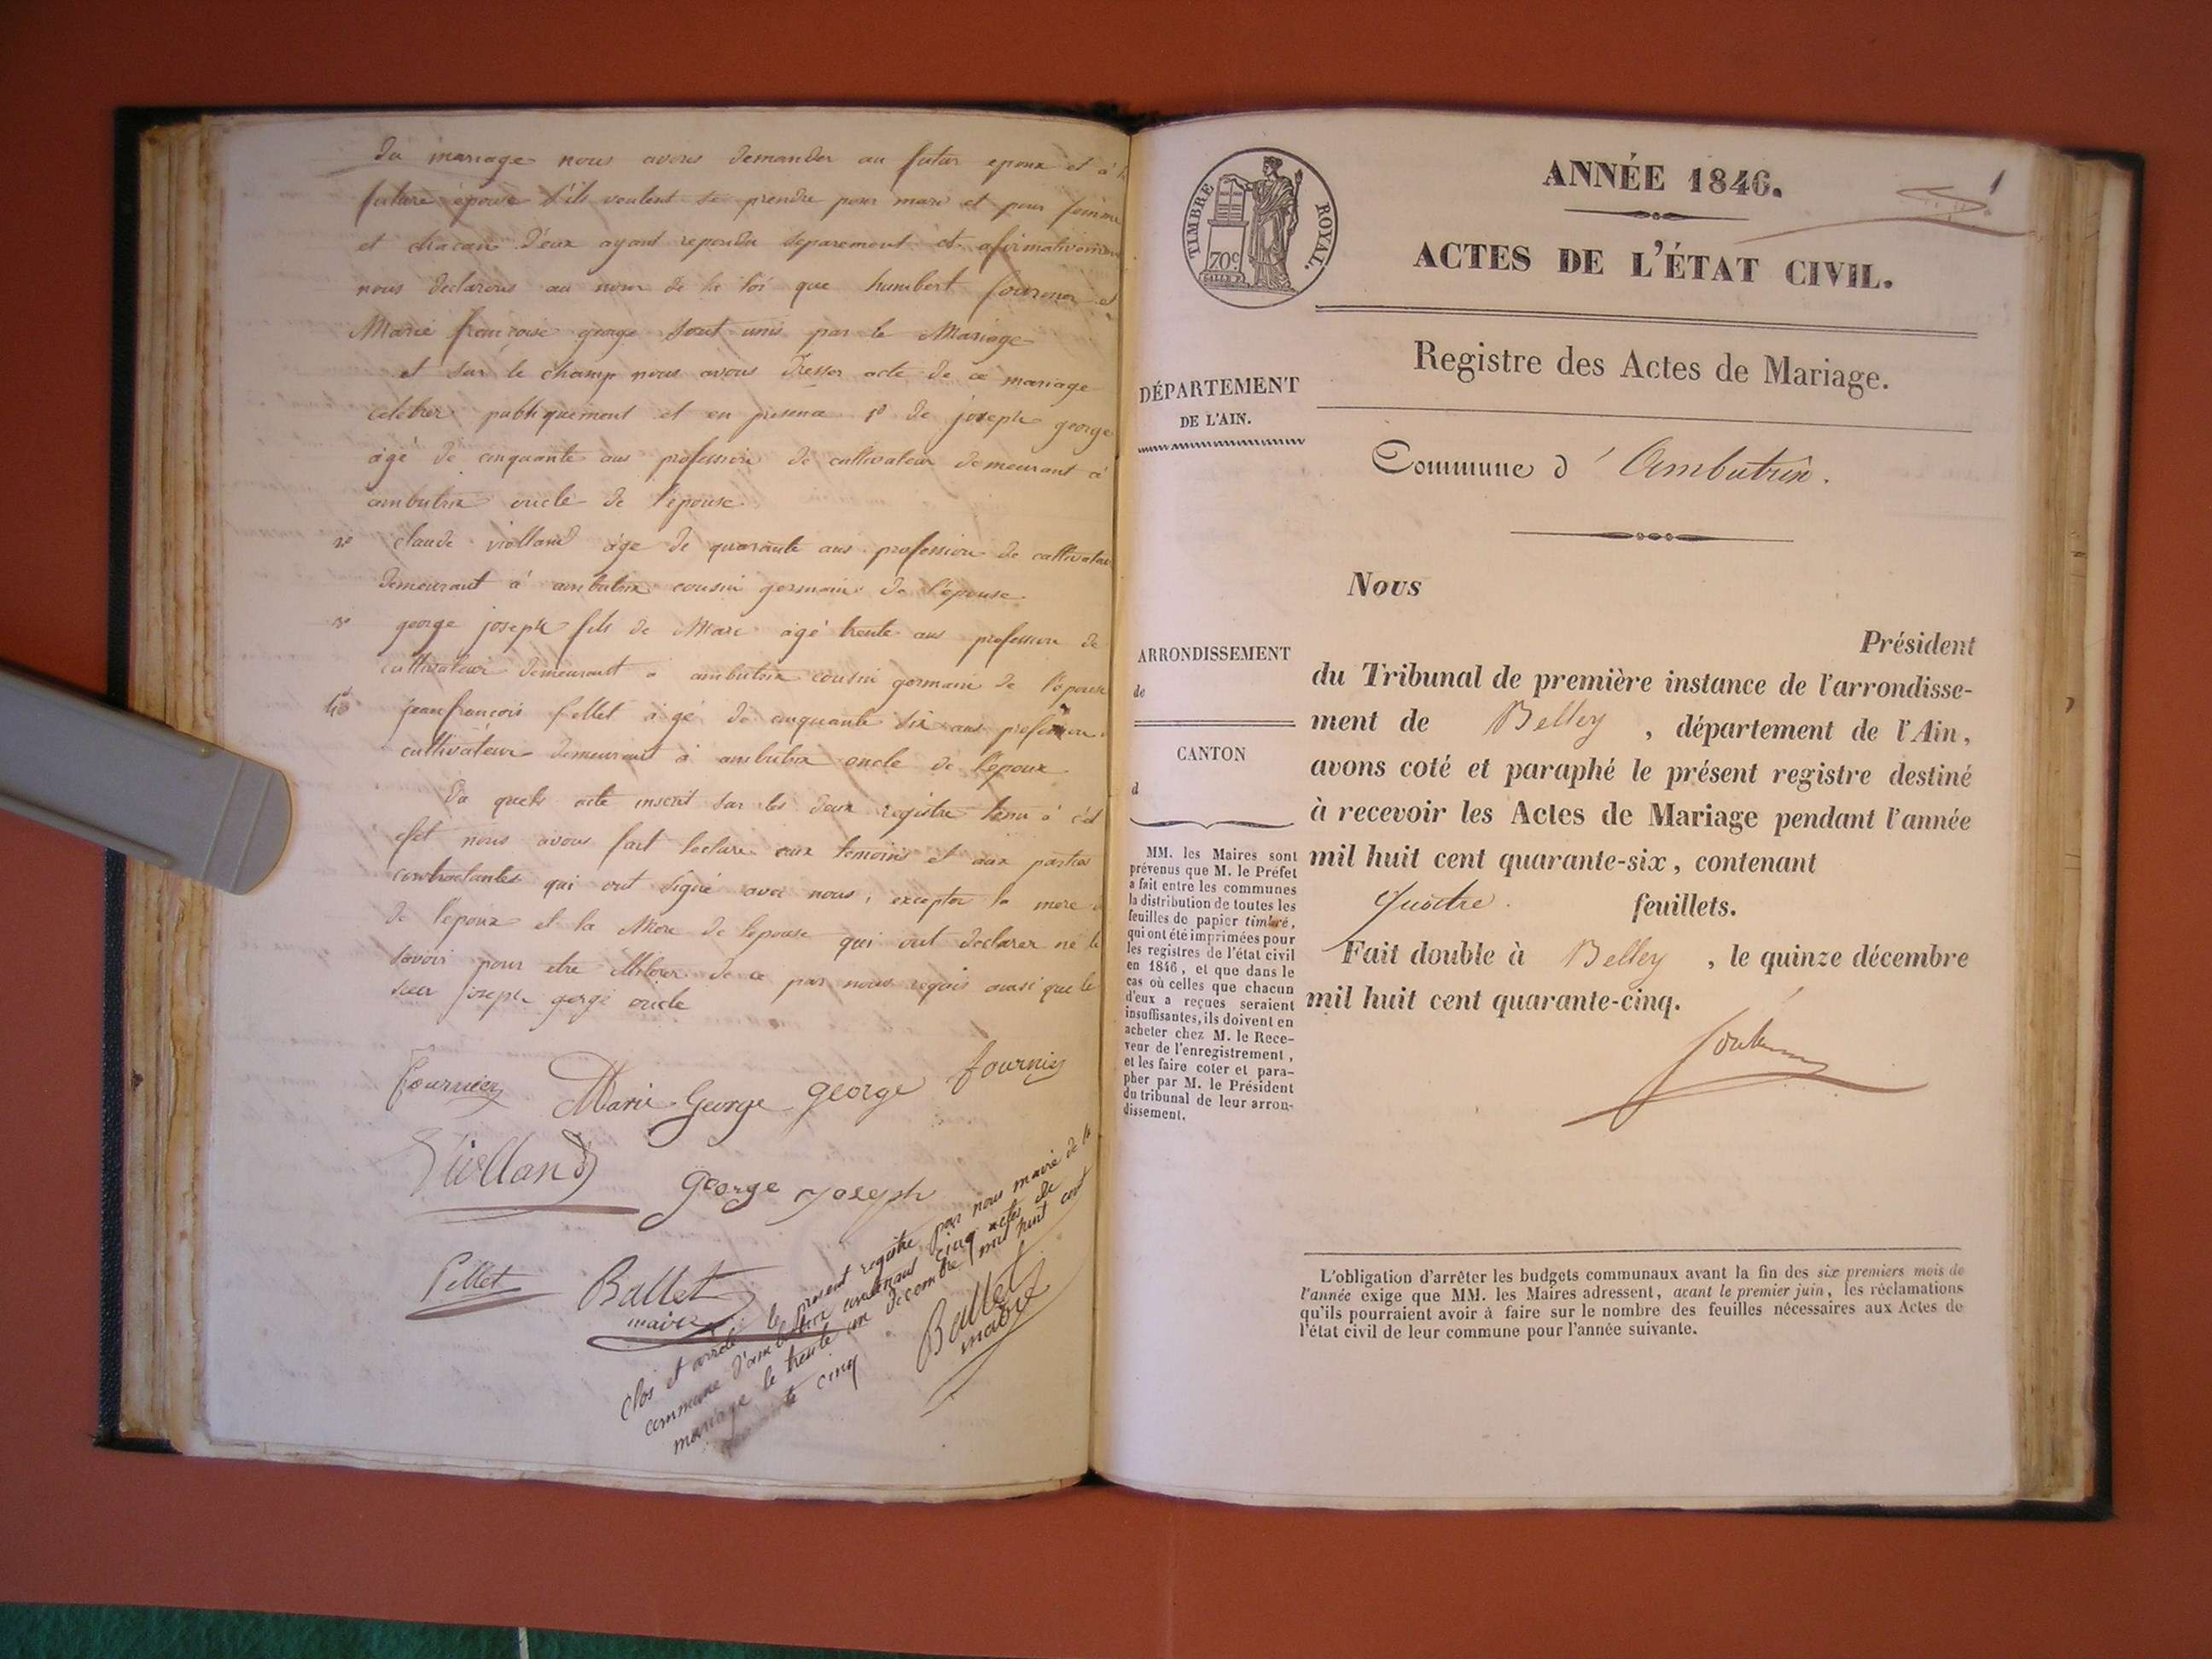 du mariage nous avons demander au futur epoux et à l
future épouse s'ils veulent se prendre pour mari et pour femme
et chacun d'eux ayant repondu separement et afirmativement
nous declarons au nom de la loi que humbert fournier et
Marie françoise george sont unis par le Mariage
et sur le champ nous avons dresser acte de ce mariage
celebrer publiquement et en presence 1º de joseph george
agé de cinquante ans profession de cultivateur demeurant à
ambutrix oncle de l'epouse
2º claude violland age de quarante ans profession de cultivateur
demeurant à ambutrix cousin germain de l'épouse
3º george joseph fils de Marc agé trente ans profession de
cultivateur demeurant a ambutrix cousin germain de l'epouse
4º jean françois pellet agé de cinquante six ans profession
cultivateur demeurant à ambutrix oncle de l'epoux
Du quels acte inscrit sur les deux registre tenu à cet
efet nous avons fait lecture aux temoins et aux parties
contractantes qui ont signé avec nous, excepter la mere
de l'epoux et la Mere de lepouse qui ont declarer ne le
savoir pour etre de ce par nous requis ausi que le
sieur joseph gorge oncle
Fournier Marie George george fournier
Violland george joseph
Pellet Ballet
maire
Clos et arrêté le present registre par nous maire de la
commune d'ambutrix contenans cinq actes de
mariage le trente un decembre mil huit cent
quarante cinq
Ballet
maire
TIMBRE ROYAL.
70c
1
ANNÉE 1846.
ACTES DE L'ÉTAT CIVIL.
Registre des Actes de Mariage.
DÉPARTEMENT
DE L'AIN.
Commune d'Ambutrix.
ARRONDISSEMENT
de
CANTON
d
MM. les Maires sont
prévenus que M. le Préfet
a fait entre les communes
la distribution de toutes les
feuilles de papier timbré,
qui ont été imprimées pour
les registres de l'état civil
en 1846, et que dans le
cas où celles que chacun
d'eux a reçues seraient
insuffisantes, ils doivent en
acheter chez M. le Rece-
veur de l'enregistrement,
et les faire coter et para-
pher par M. le Président
du tribunal de leur arron-
dissement.
Nous
Président
du Tribunal de première instance de l'arrondisse-
ment de Belley , département de l'Ain,
avons coté et paraphé le présent registre destiné
à recevoir les Actes de Mariage pendant l'année
mil huit cent quarante-six, contenant
quatre. feuillets.
Fait double à Belley , le quinze décembre
mil huit cent quarante-cinq.
L'obligation d'arrêter les budgets communaux avant la fin des six premiers mois de
l'année exige que MM. les Maires adressent, avant le premier juin, les réclamations
qu'ils pourraient avoir à faire sur le nombre des feuilles nécessaires aux Actes de
l'état civil de leur commune pour l'année suivante.